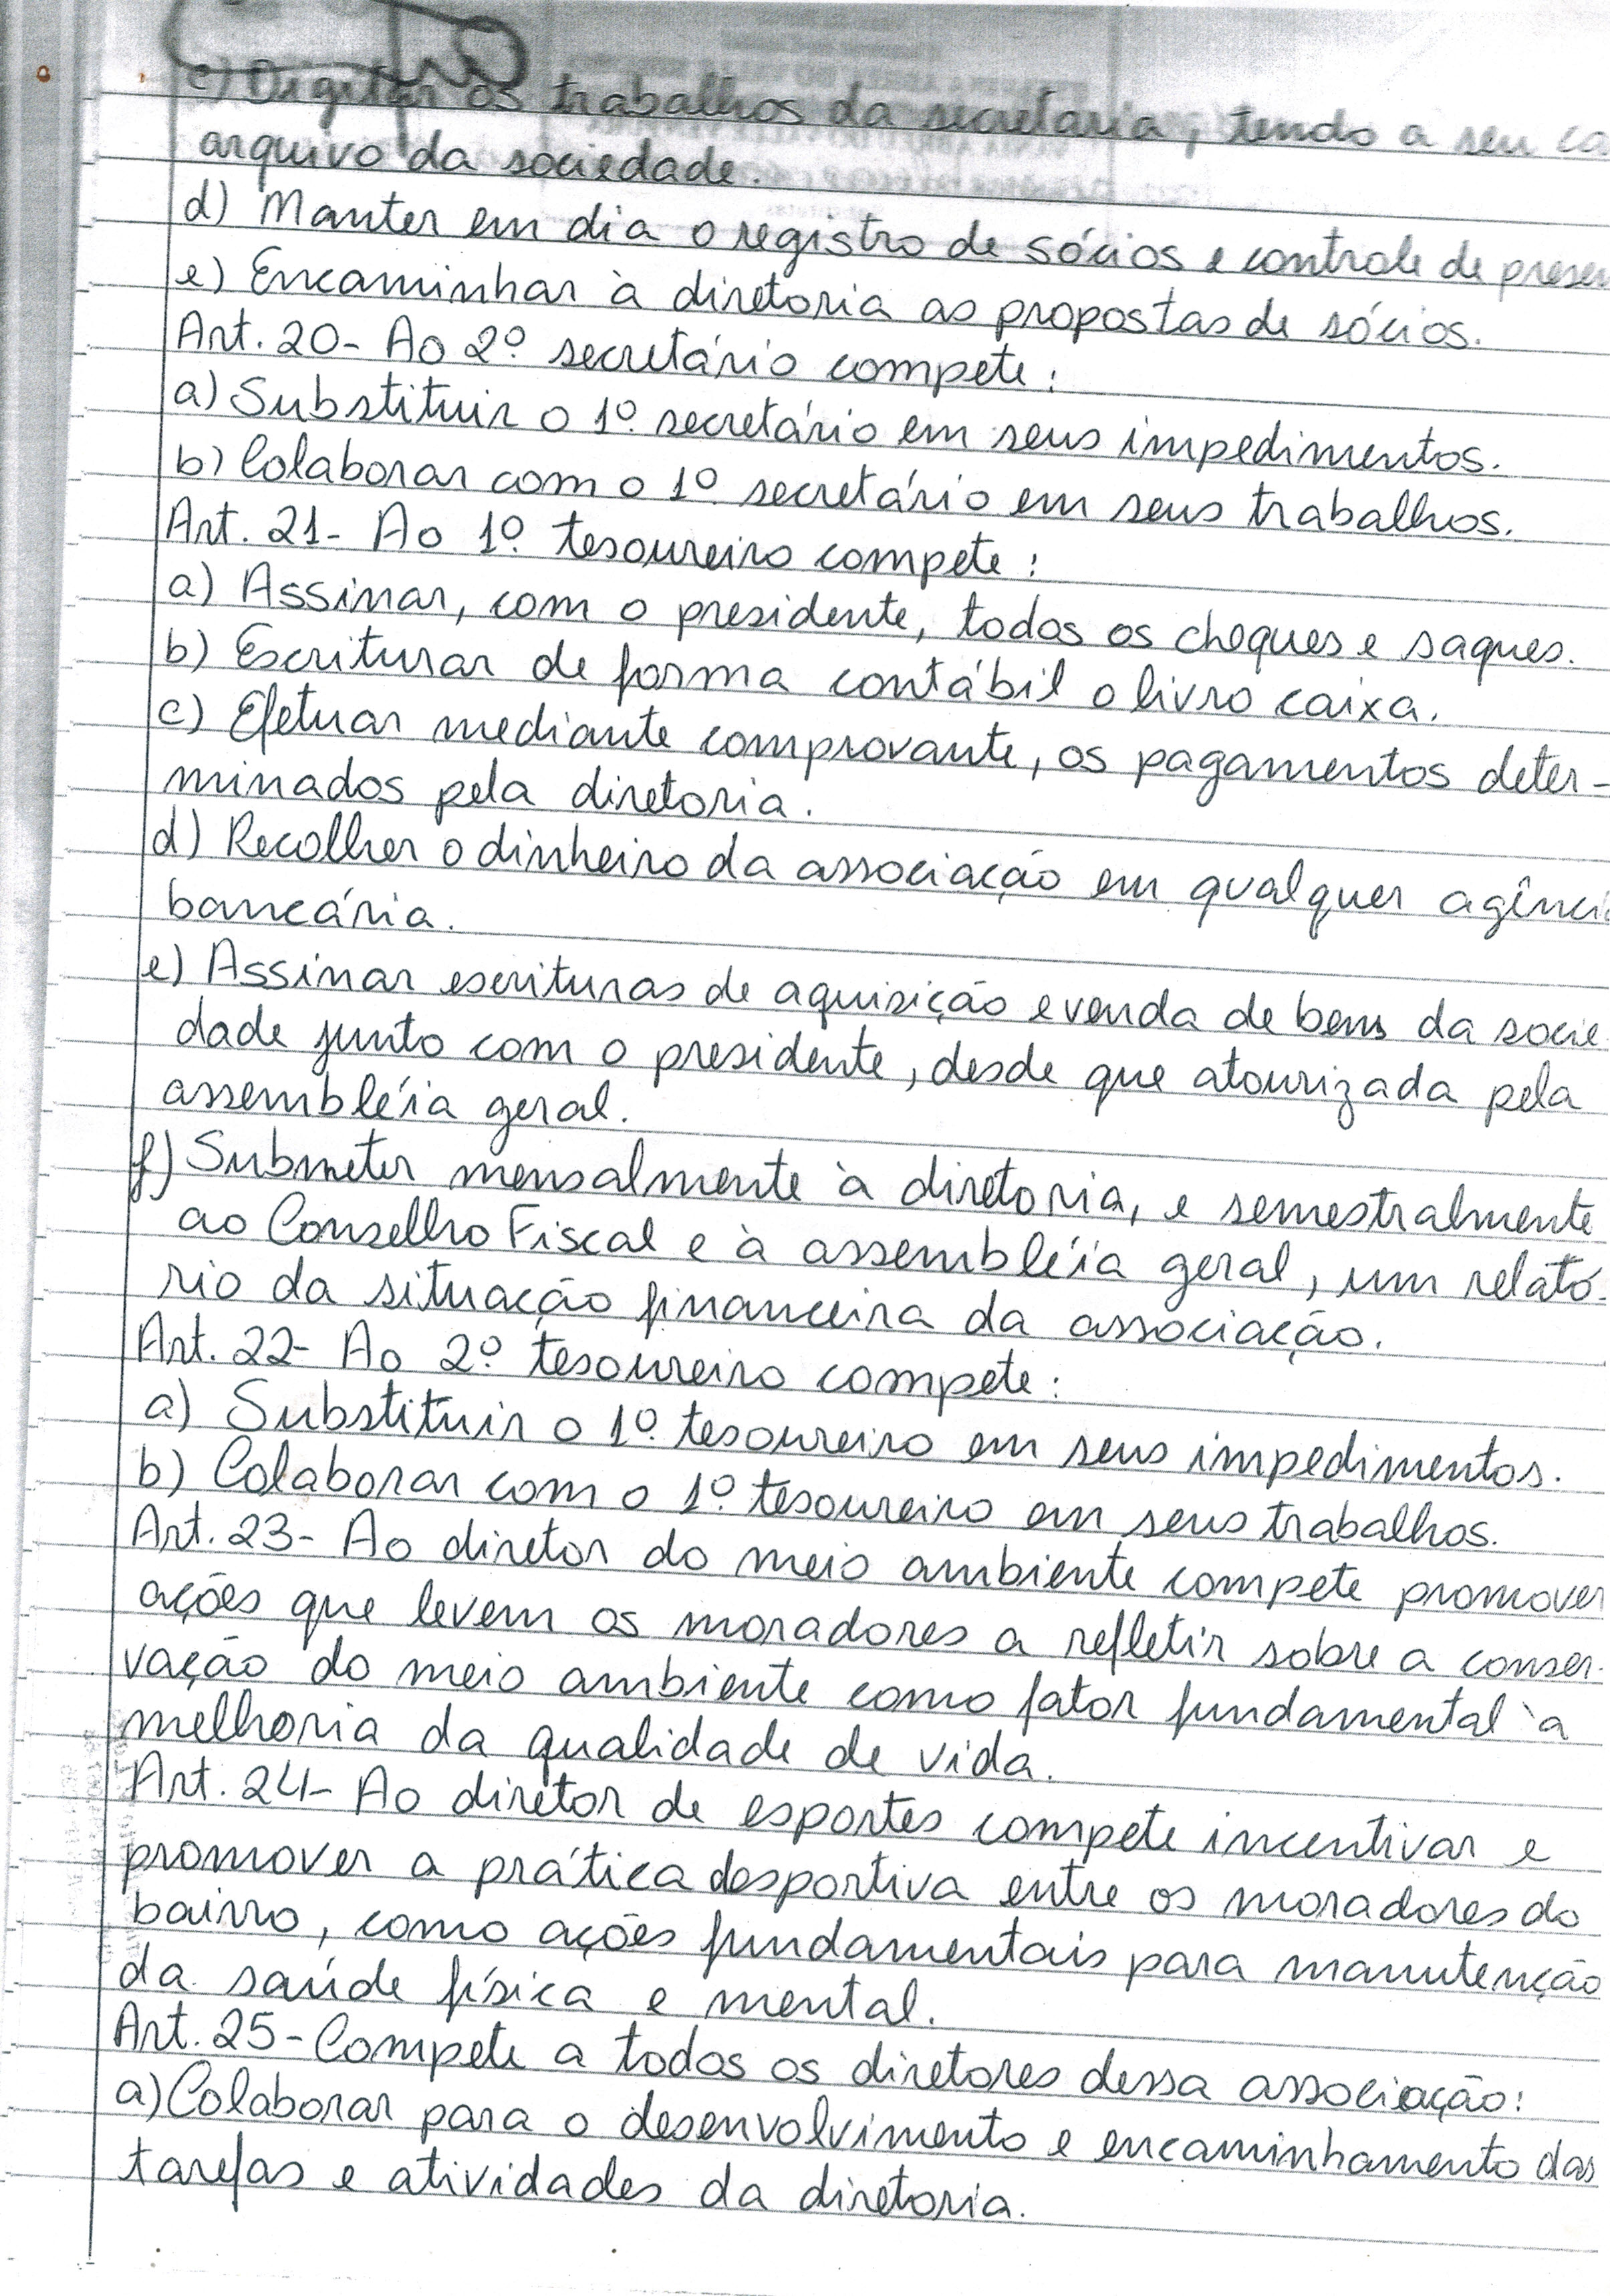 c) Digitar os trabalhos da secretaria, tendo a seu ca
arquivo da sociedade.
d) Manter em dia o registro de sócios e controle de presen
e) Encaminhar à diretoria as propostas de sócios.
Art. 20- Ao 2º secretário compete:
a) Substituir o 1º secretário em seus impedimentos.
b) Colaborar com o 1º secretário em seus trabalhos.
Art. 21- Ao 1º tesoureiro compete:
a) Assinar, com o presidente, todos os cheques e saques.
b) Escriturar de forma contábil o livro caixa.
c) Efetuar mediante comprovante, os pagamentos deter-
minados pela diretoria.
d) Recolher o dinheiro da associação em qualquer agênci
bancária.
e) Assinar escrituras de aquisição e venda de bens da socie
dade junto com o presidente, desde que atourizada pela
assembléia geral.
f) Submeter mensalmente à diretoria, e semestralmente
ao Conselho Fiscal e à assembléia geral, um relató-
rio da situação financeira da associação.
Art. 22- Ao 2º tesoureiro compete:
a) Substituir o 1º tesoureiro em seus impedimentos.
b) Colaborar com o 1º tesoureiro em seus trabalhos.
Art. 23- Ao diretor do meio ambiente compete promover
ações que levem os moradores a refletir sobre a conser-
vação do meio ambiente como fator fundamental à
melhoria da qualidade de vida.
Art. 24- Ao diretor de esportes compete incentivar e
promover a prática desportiva entre os moradores do
bairro, como ações fundamentais para manutenção
da saúde física e mental.
Art. 25- Compete a todos os diretores dessa associação:
a) Colaborar para o desenvolvimento e encaminhamento das
tarefas e atividades da diretoria.